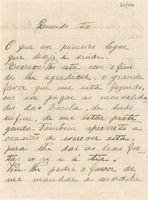 Querido tio
O que em primeiro logar
que desejo é saude.
Escrevo-lhe esta com o fim
de lhe agradecer o grande
favor que me está fazendo,
em me pagar as mensalida
des da Escola de
de me estar prote
gendo. Tambem aproveito a
ocasião de escrever esta,
para lhe dar as boas fes
tas a si e á tia.
Vou lhe pedir o favor de
me mandar a morada